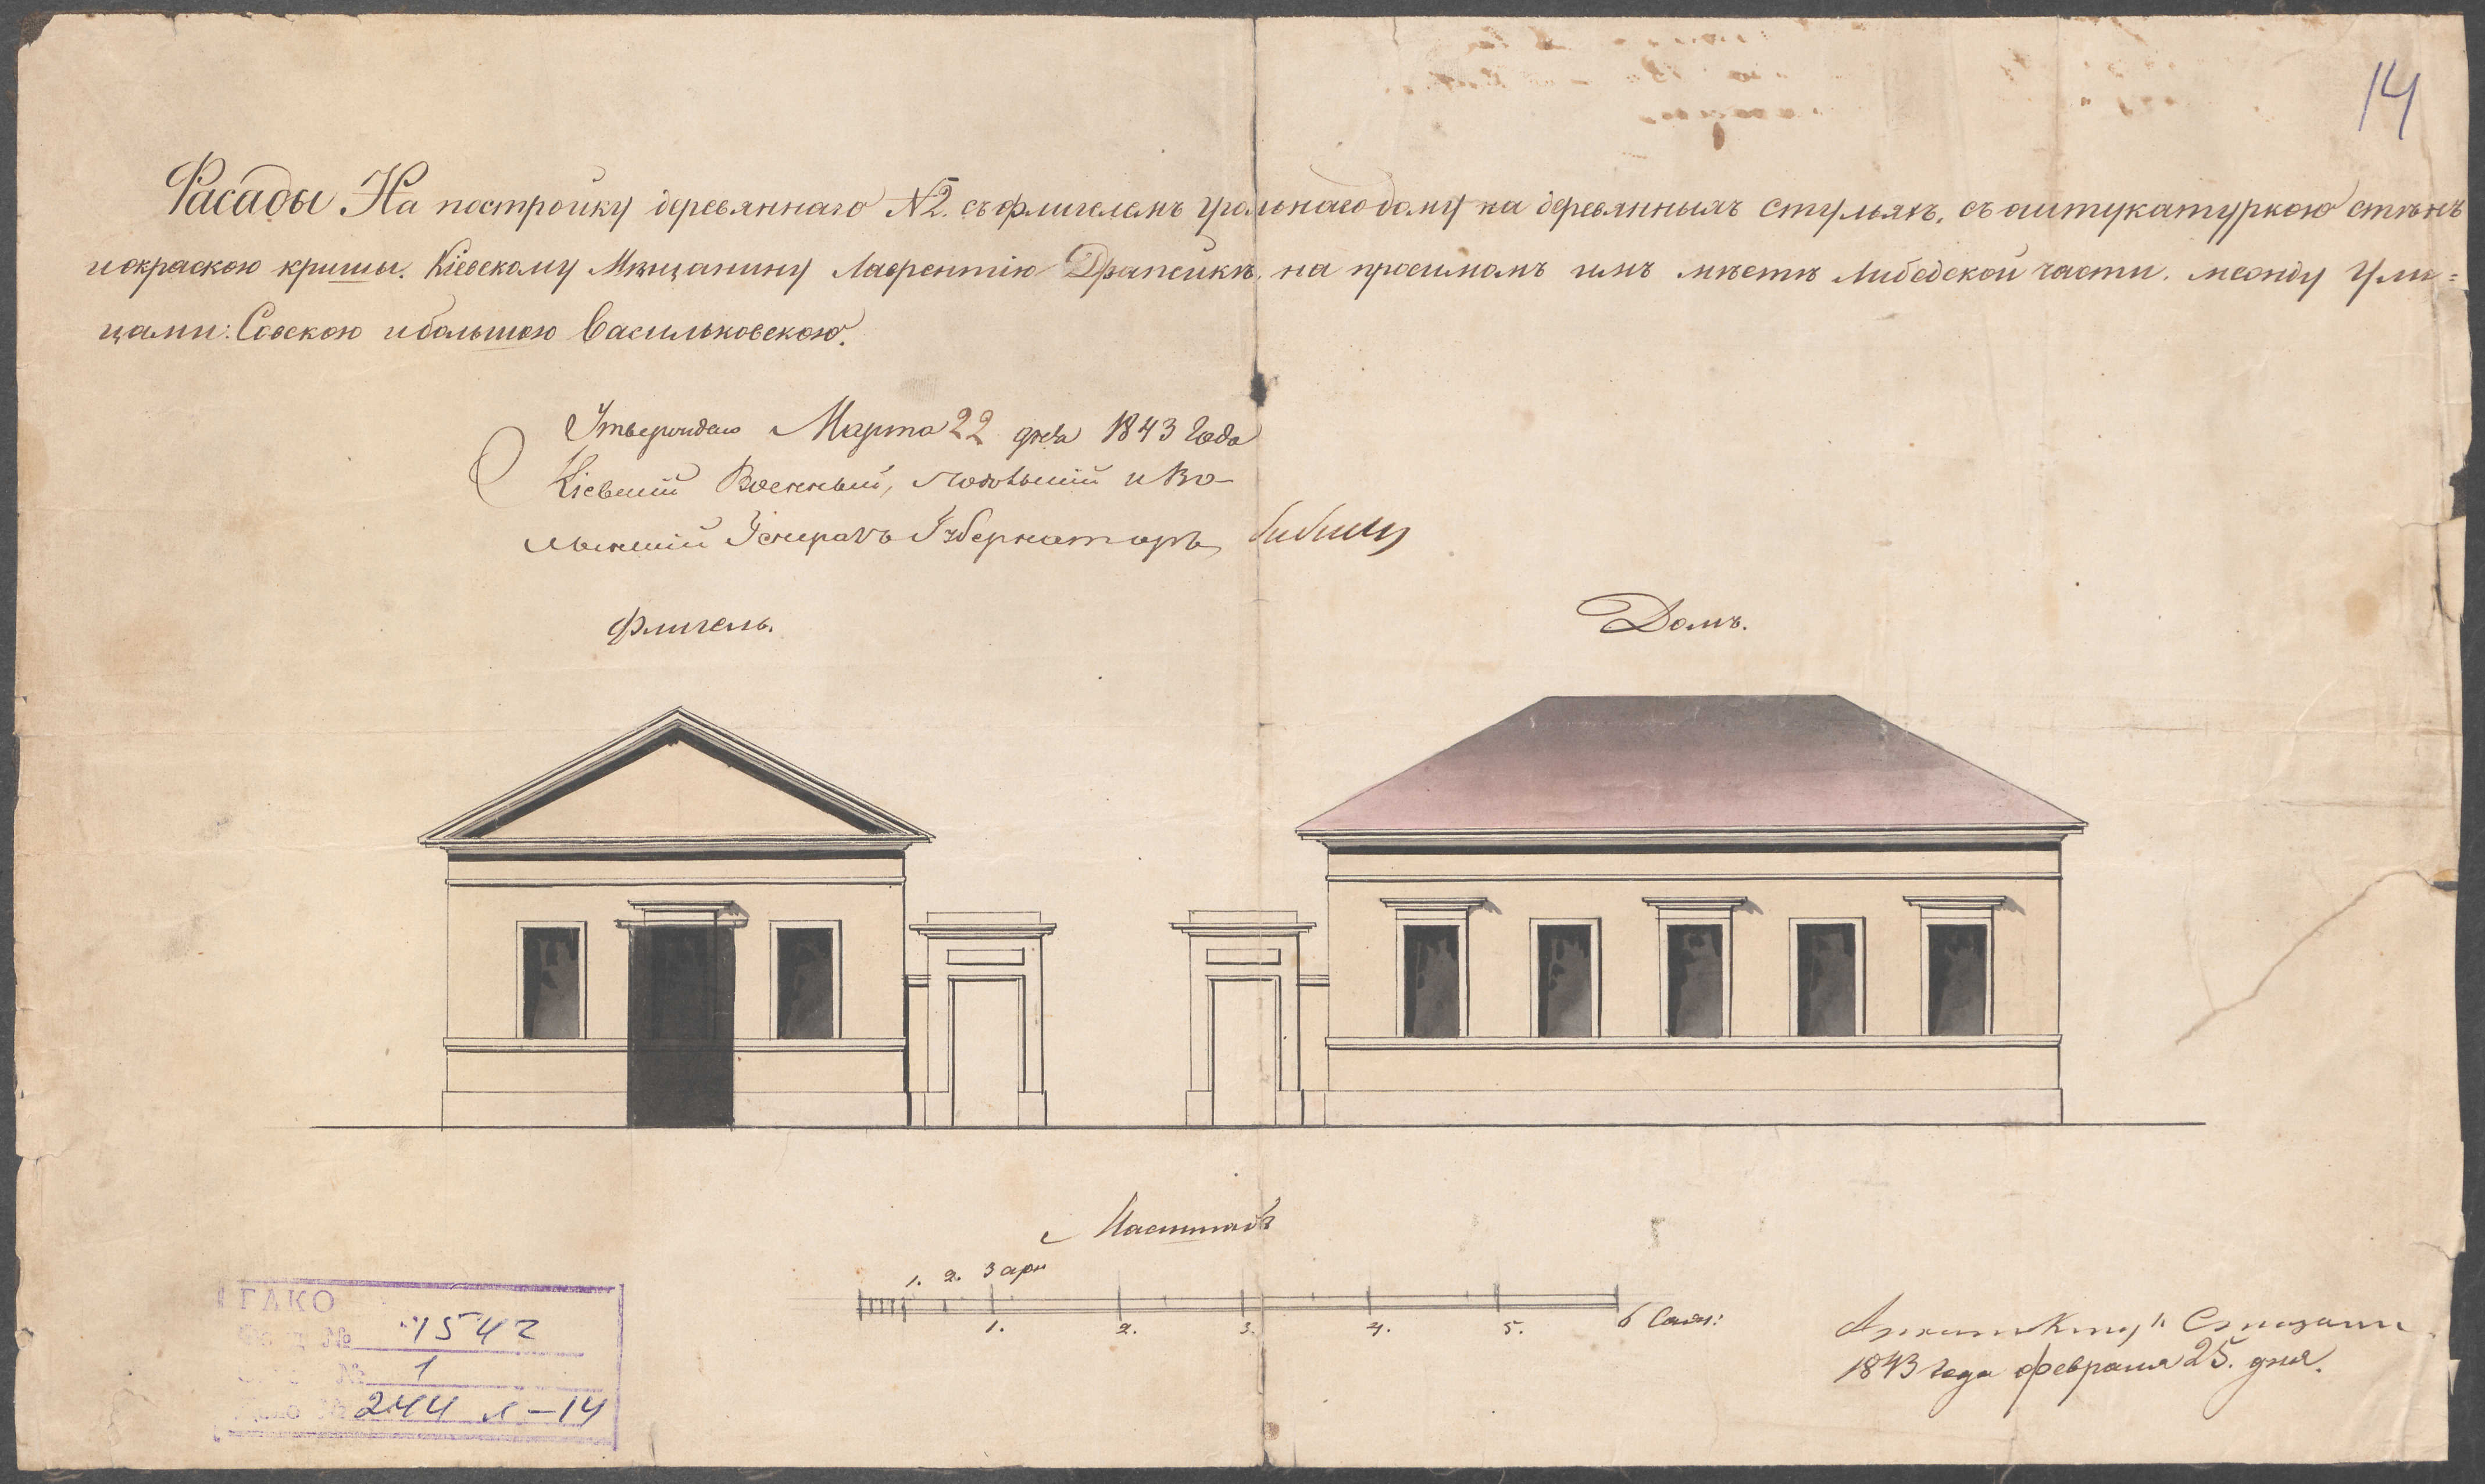 14
Фасады На постройку деревяннаго №2. съ флигелемъ угольнаго дому на деревянныхъ стульяхъ, съ оштукатуркою стѣнъ
и окраскою криши. Кіевскому Мѣщанину Лаврентію Драпейкѣ, на просимомъ имъ мѣстѣ Либедской части. между Ули=
цами: Совскою и большою Васильковскою.
Утверждаю Марта 22 дня 1843 года
Кіевский Военный, Подольский и Во-
лынский Генералъ Губернаторъ, Бибиковъ
Флигель.
Домъ.
Масштабъ
1. 2. 3 арш
1. 2. 3. 4. 5. 6 Саж:
Архитекторъ
1843 года февраля 25. дня.
ГАКО
№ 1542
№ 1
№ 244 л-14